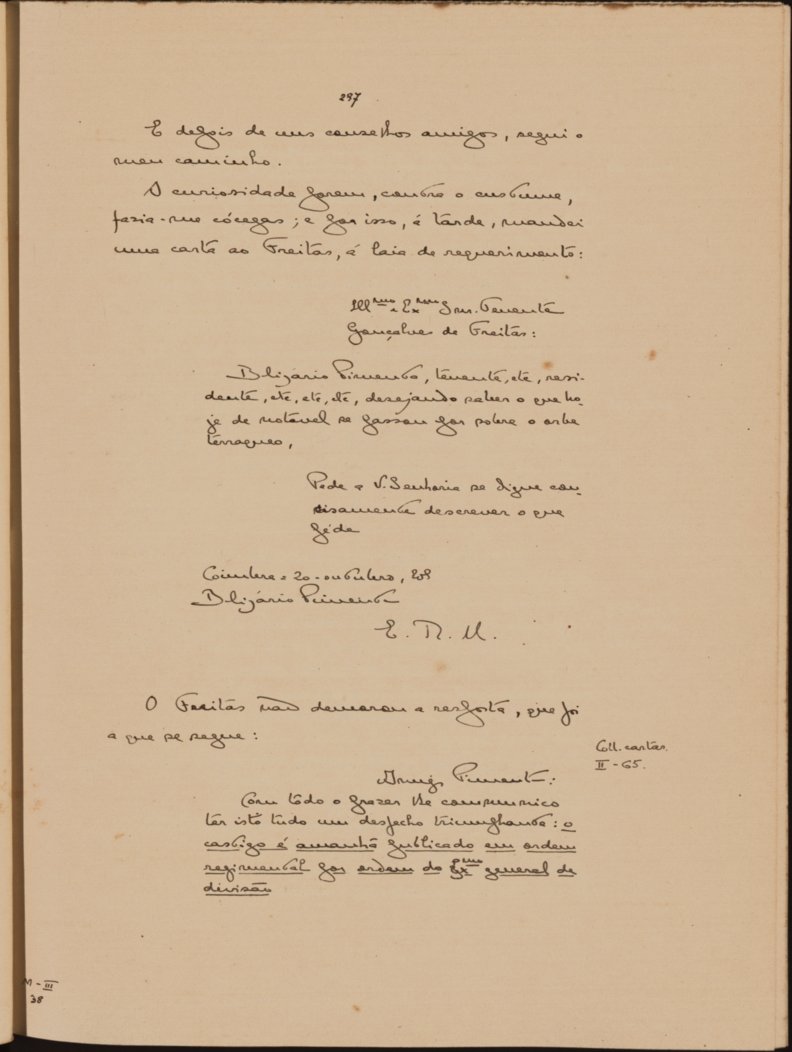 297
E depois de uns conselhos amigos, segui o
meu caminho.
A curiosidade porem, contra o custume,
fazia-me cócegas; e por isso, á tarde, mandei
uma carta ao Freitas, á laia de requerimento:
Illmo e Exmo Snr. Tenente
Gonçalves de Freitas:
Blizario Pimenta, tenente, etc, resi-
dente, etc, etc, etc, desejando saber o que ho-
je de notavel se passou por sobre o orbe
terraqueo,
Pede a V. Senhoria se digne con-
cisamente descrever o que
péde
Coimbra, 20-outubro, 909
Blizário Pimenta
E. R. M.
O Freitas não demorou a resposta, que foi
a que se segue:
Coll. cartas.
II - 65.
Amigo Pimenta:
Com todo o prazer lhe communico
ter isto tudo um desfecho triumphante: o
castigo é amanhã publicado em ordem
regimental por ordem do Exmo general de
divisão
M - III
38